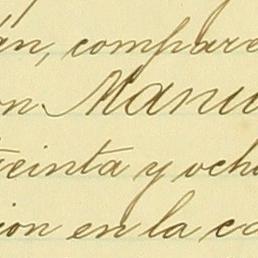 án, compare
on Manu
treinta y och
ion en la ca